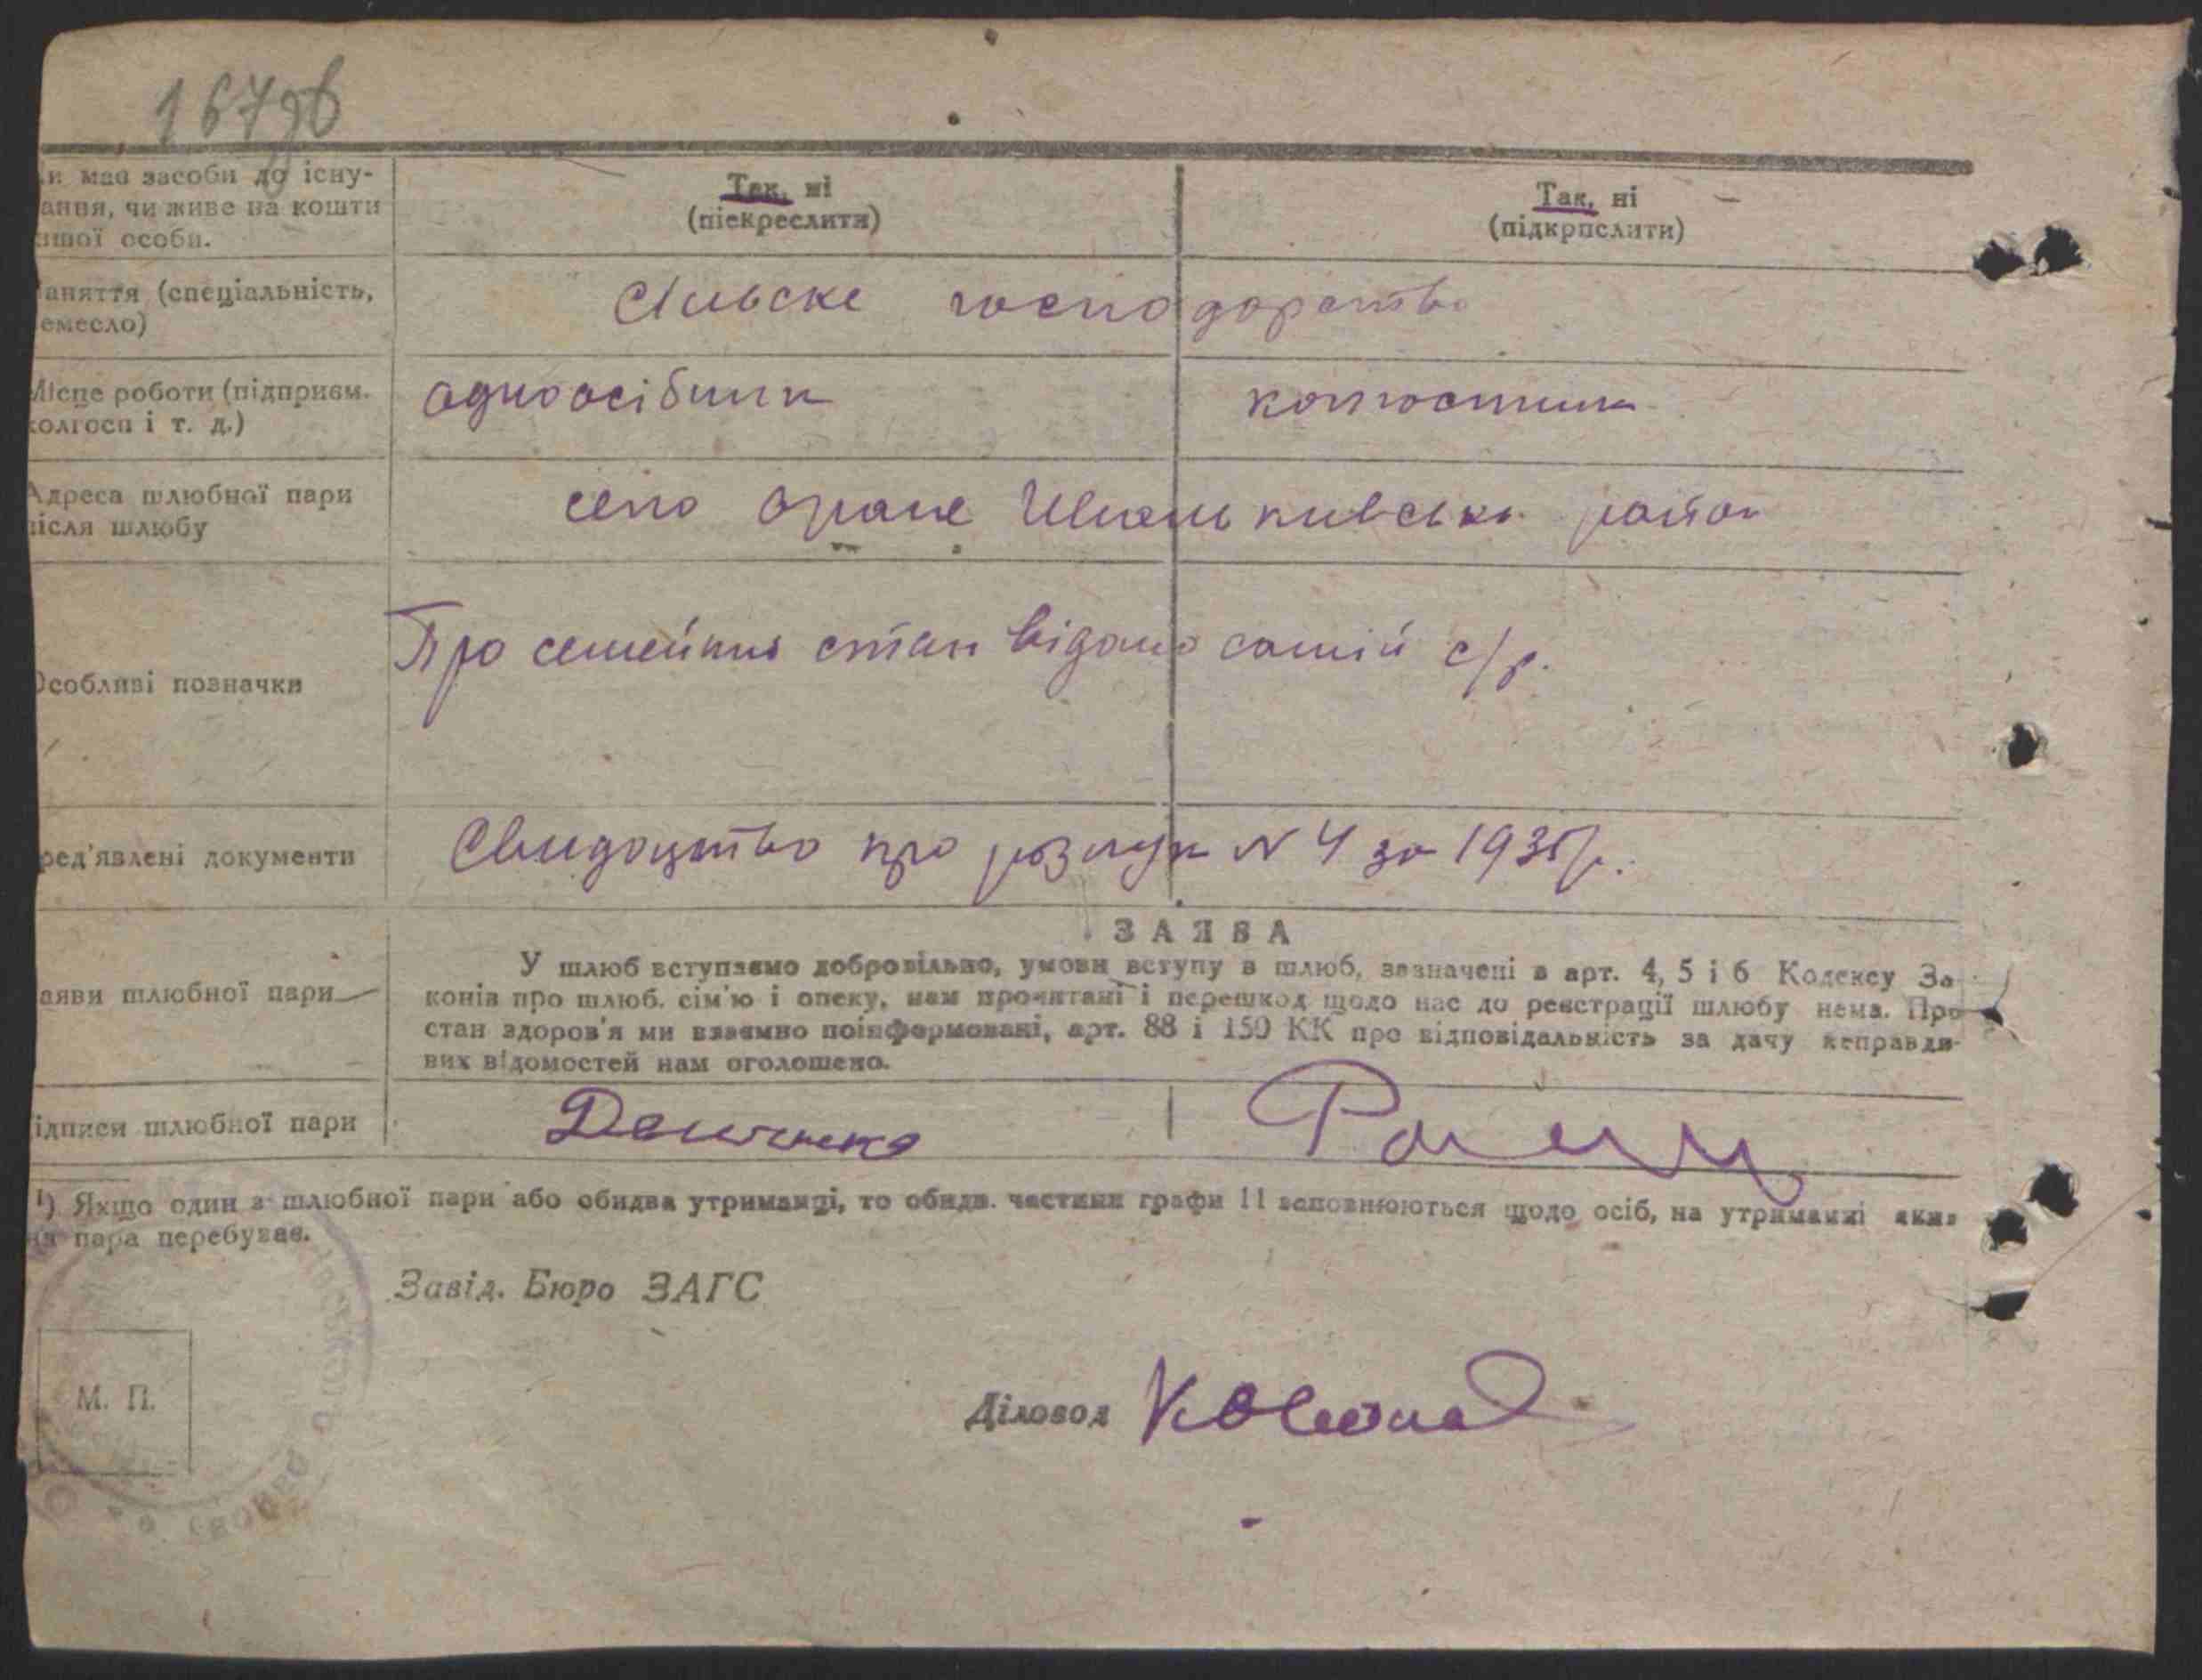 167
и має засоби до існу-
ання, чи живе на кошти
ншої особи.
Так, ні
(піекреслити)
Так, ні
(підкрпслити)
аняття (спеціальність,
емесло)
Сільске господарство
Місце роботи (підприєм.
колгосп і т. д.)
одноосібник
колгоспник
Адреса шлюбної пари
після шлюбу
село Оране район
Особливі позначки
Про семейний стан відомо самій с/р.
ред'явлені документи
Свидоцтво про розлуку N 4 за 1935 р.
ЗАЯВА
аяви шлюбної пари
У шлюб вступаємо добровільно, умови вступу в шлюб, зазначені в арт. 4, 5 і 6 Кодексу За-
конів про шлюб. сім'ю і опеку, нам прочитані і перешкод щодо нас до реєстрації шлюбу нема. Про
стан здоров'я ми взаємно поінформовані, арт. 88 і 150 КК про відповідальність за дачу неправди-
вих відомостей нам оголошено.
ідписи шлюбної пари
Демченко
¹) Якщо один з шлюбної пари або обидва утриманці, то обидв. частини графи 11 заповнюються щодо осіб, на утриманні яких
ця пара перебуває.
Завід. Бюро ЗАГС
М. П.
Діловод